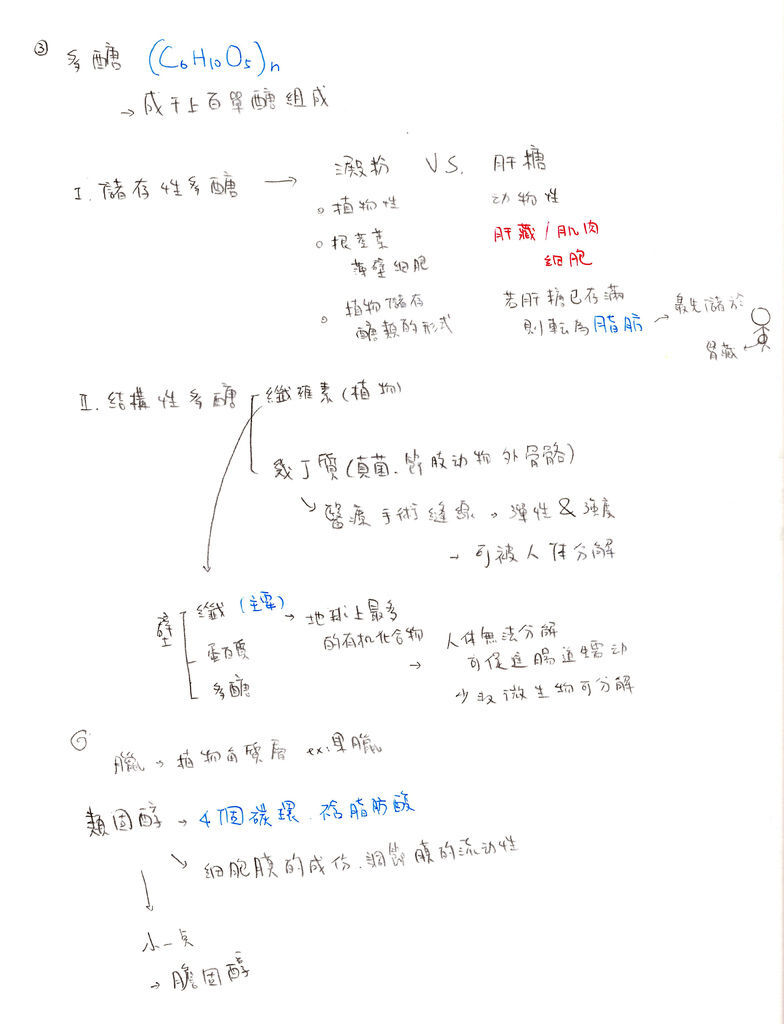 ③ 多醣 (C6H10O5)n
→ 成千上百單醣組成
I. 儲存性多醣 → 澱粉 VS. 肝糖
。植物性 动物性
。根莖葉 肝臟/肌肉
薄壁細胞 細胞
。植物儲存 若肝糖已存滿
醣類的形式 則転為脂肪 → 最先儲於
腎臟
II. 結構性多醣 纖維素(植物)
幾丁質(真菌.節肢动物外骨骼)
↘ 醫療手術縫線 → 彈性&強度
→ 可被人体分解
壁 纖(主要) → 地球上最多
的有机化合物
蛋白質
多醣
→ 人体無法分解
可促進腸道蠕动
少数微生物可分解
⑥
臘 → 植物角質層 ex:果臘
類固醇 → 4個碳環.不含脂肪酸
↘ 細胞膜的成份.調節膜的流动性
↓
小一点
→ 膽固醇